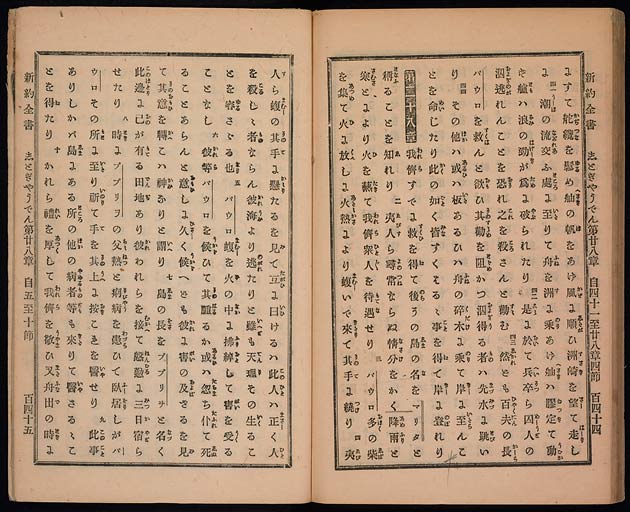 新約全書 志とぎやうでん第廿八章 自四十一至廿八章四節 百四十四
よすて舵纜を慰め舳の帆をあげ風よ順ひ洲濱を望て走し
よ 潮の流交ふ處よ至りて舟を洲よ乘あげ舳ハ膠定て動
き艫ハ浪の勁が爲よ破られたり 是よ於て兵卒ら囚人の
泅逃れんことを恐れ之を殺さんと勸む 然ども百夫の長
パウロを救んと欲ひ其勸を阻かつ泅得る者ハ先水よ跳い
り その他ハ或ハ板あるひハ舟の碎木よ乘て岸よ至んこ
とを命じたり此の如く皆すくはるゝ事を得て岸よ登れり
第二十八章 我儕すでよ救を得て後この島の名をマリタと
稱ることを知れり 夷人ら尋常ならぬ情分をかく降雨と
寒とよより火を蓺て我儕衆人を待遇せり パウロ多の柴
を集て火よ放しよ火熱より蝮いで來て其手よ繞り 夷
新約全書 志とぎやうでん第廿八章 自五至十節 百四十五
人ら蝮の其手よ懸たるを見て互よ曰けるハ此人ハ正く人
を殺しゝ者ならん彼海より逃たりと雖も天理その生るこ
とを容さゞる也 五 パウロ蝮を火の中よ拂締して害を受る
ことなし 六 彼等パウロを候ひて其腫るか或ハ忽ち仆て死
ることあらんと意しよ久く候へども彼よ害の及ざるを見
て其意を轉こハ神なりと謂り 七 島の長をプブリヲと名く
此邊よ己が有る田地あり彼われらを接て慇懃よ三日宿ら
せたり 八 時よプブリヲの父熱と痢病を患ひて臥居しがパ
ウロその所よ至り祈て手を其上よ按これを醫せり 九 此事
ありしかバ島よある所の他の病者等も來りて醫さるゝこ
とを得たり 十 かれら禮を厚して我儕を敬ひ又舟出の時よ